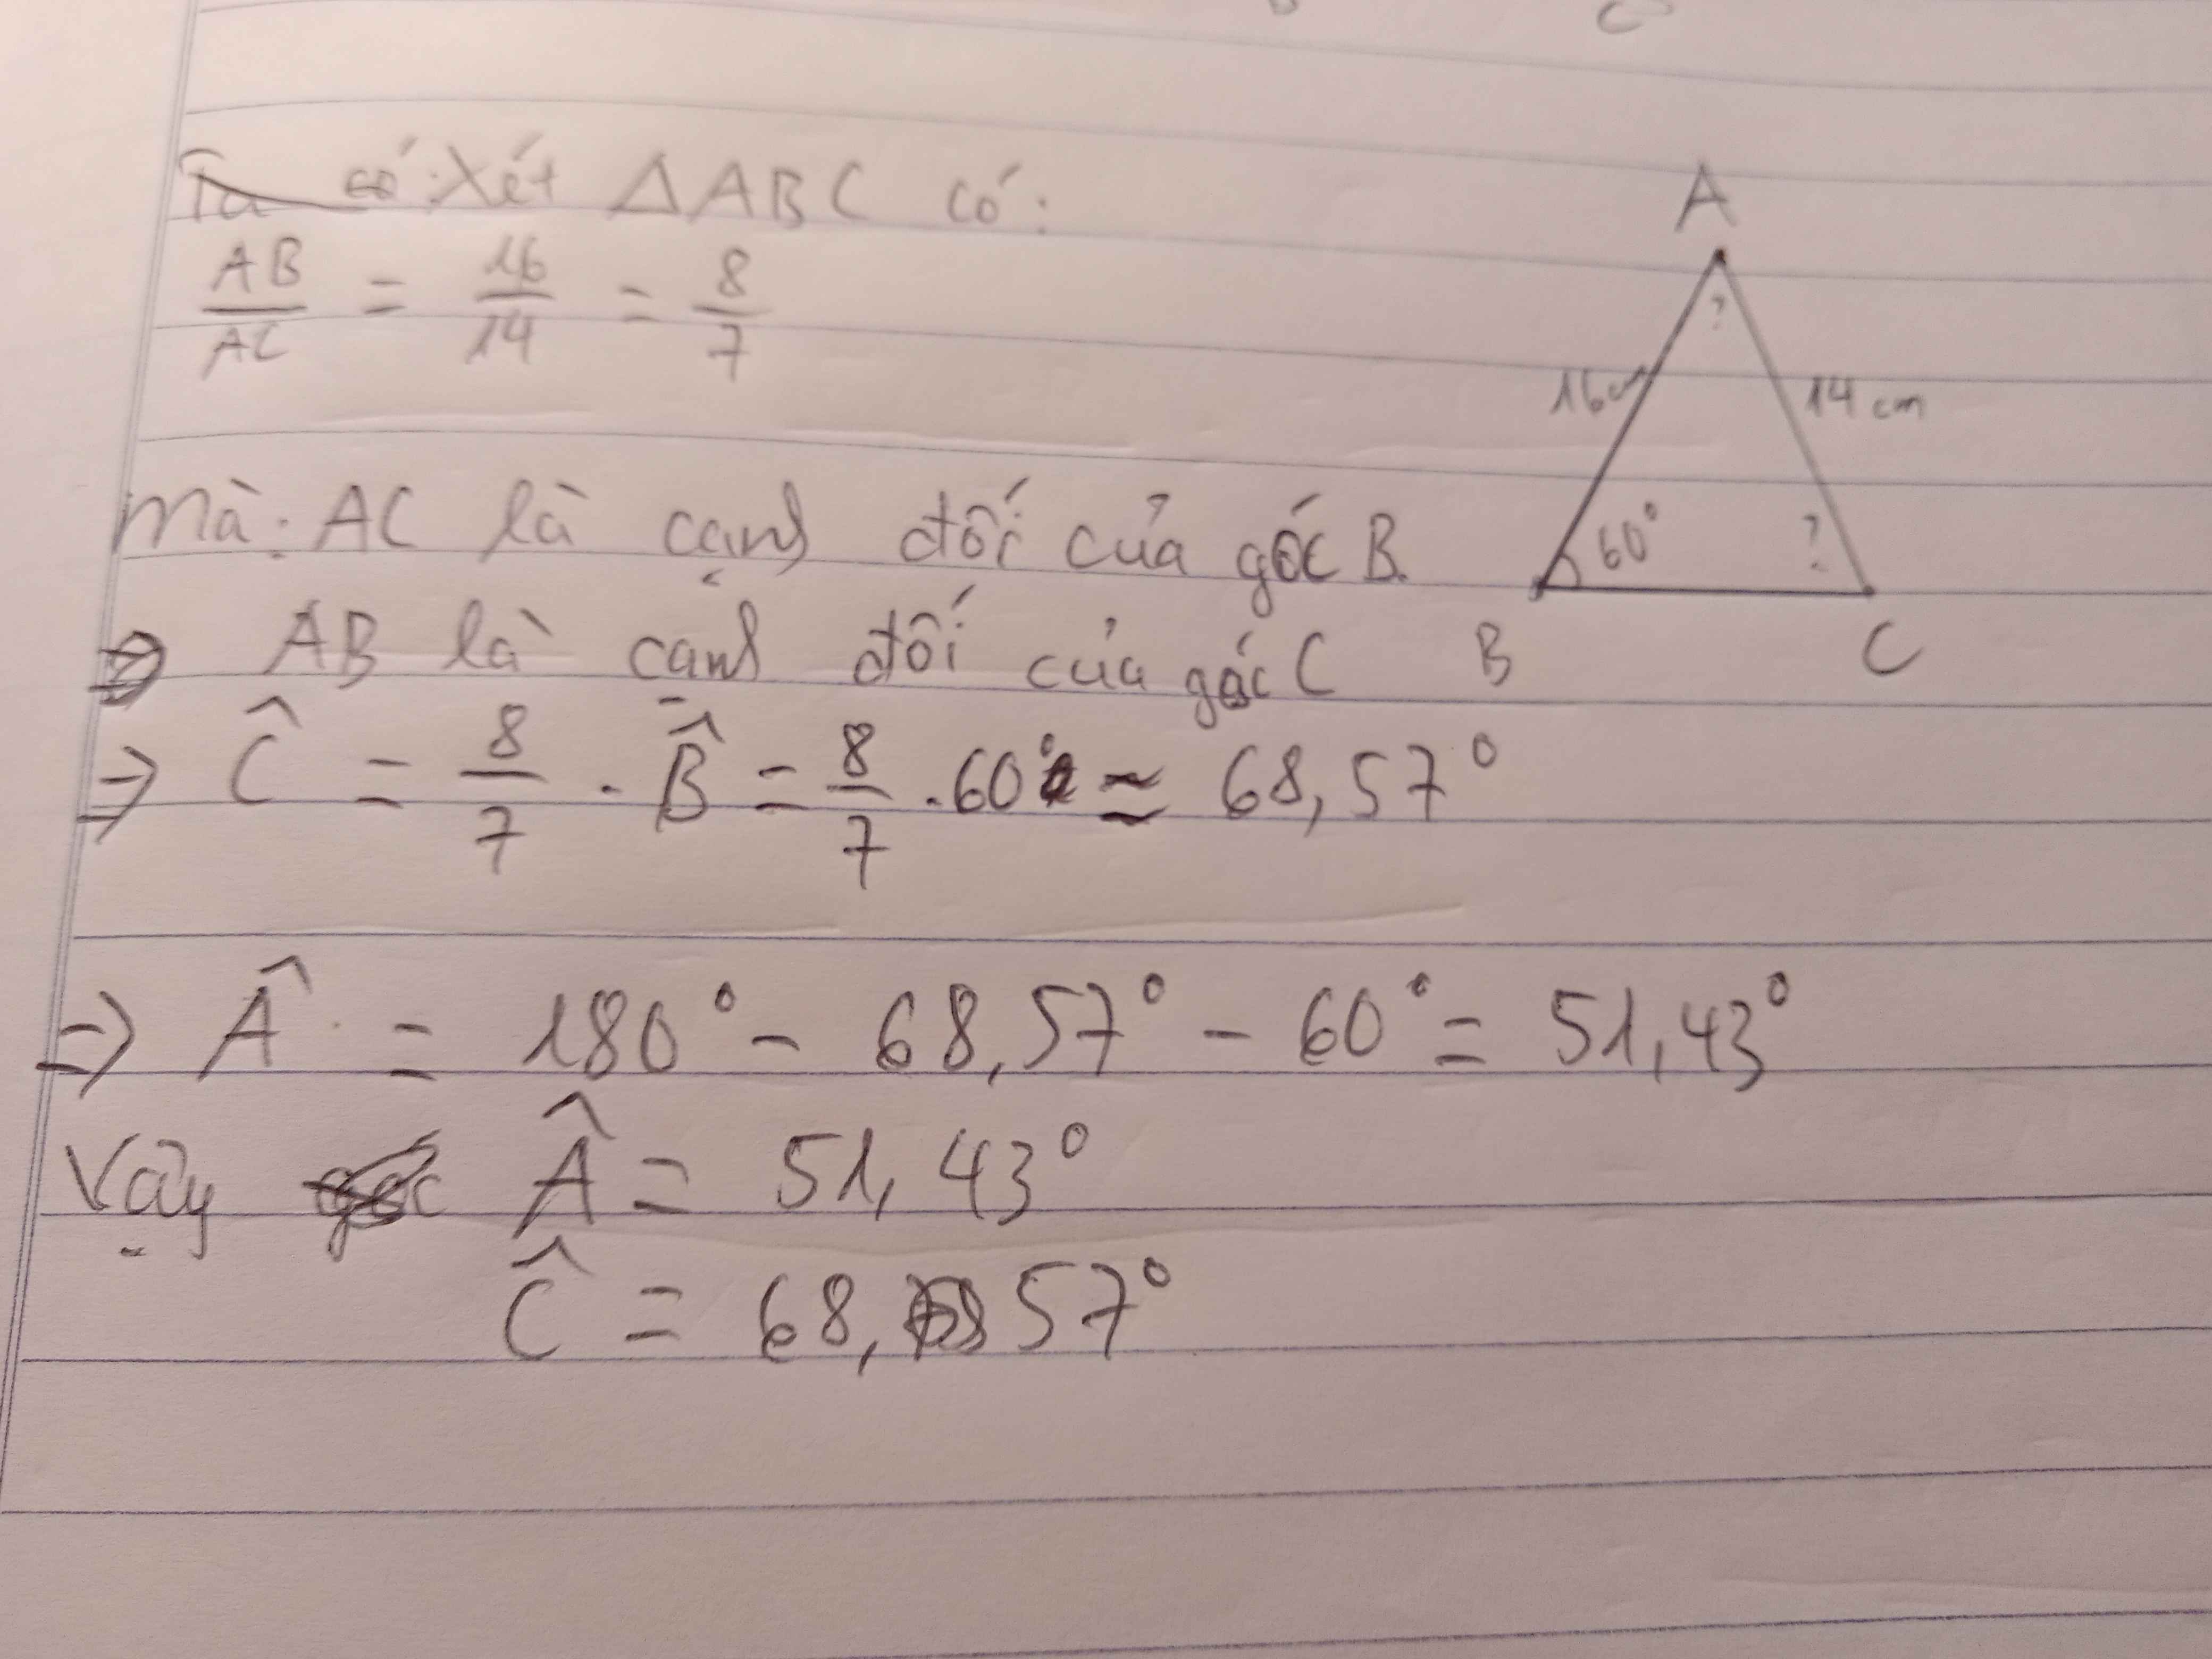 Ta có: Xét ΔABC có:
AB/AC = 16/14 = 8/7
Mà: AC là cạnh đối của góc B.
=> AB là cạnh đối của góc C
=> Ĉ = 8/7 . B̂ = 8/7 .60° ≃ 68,57°
=> Â = 180° - 68,57° - 60° = 51,43°
Vậy góc Â = 51,43°
Ĉ = 68, 57°
A
?
16cm
14 cm
60°
?
B
C